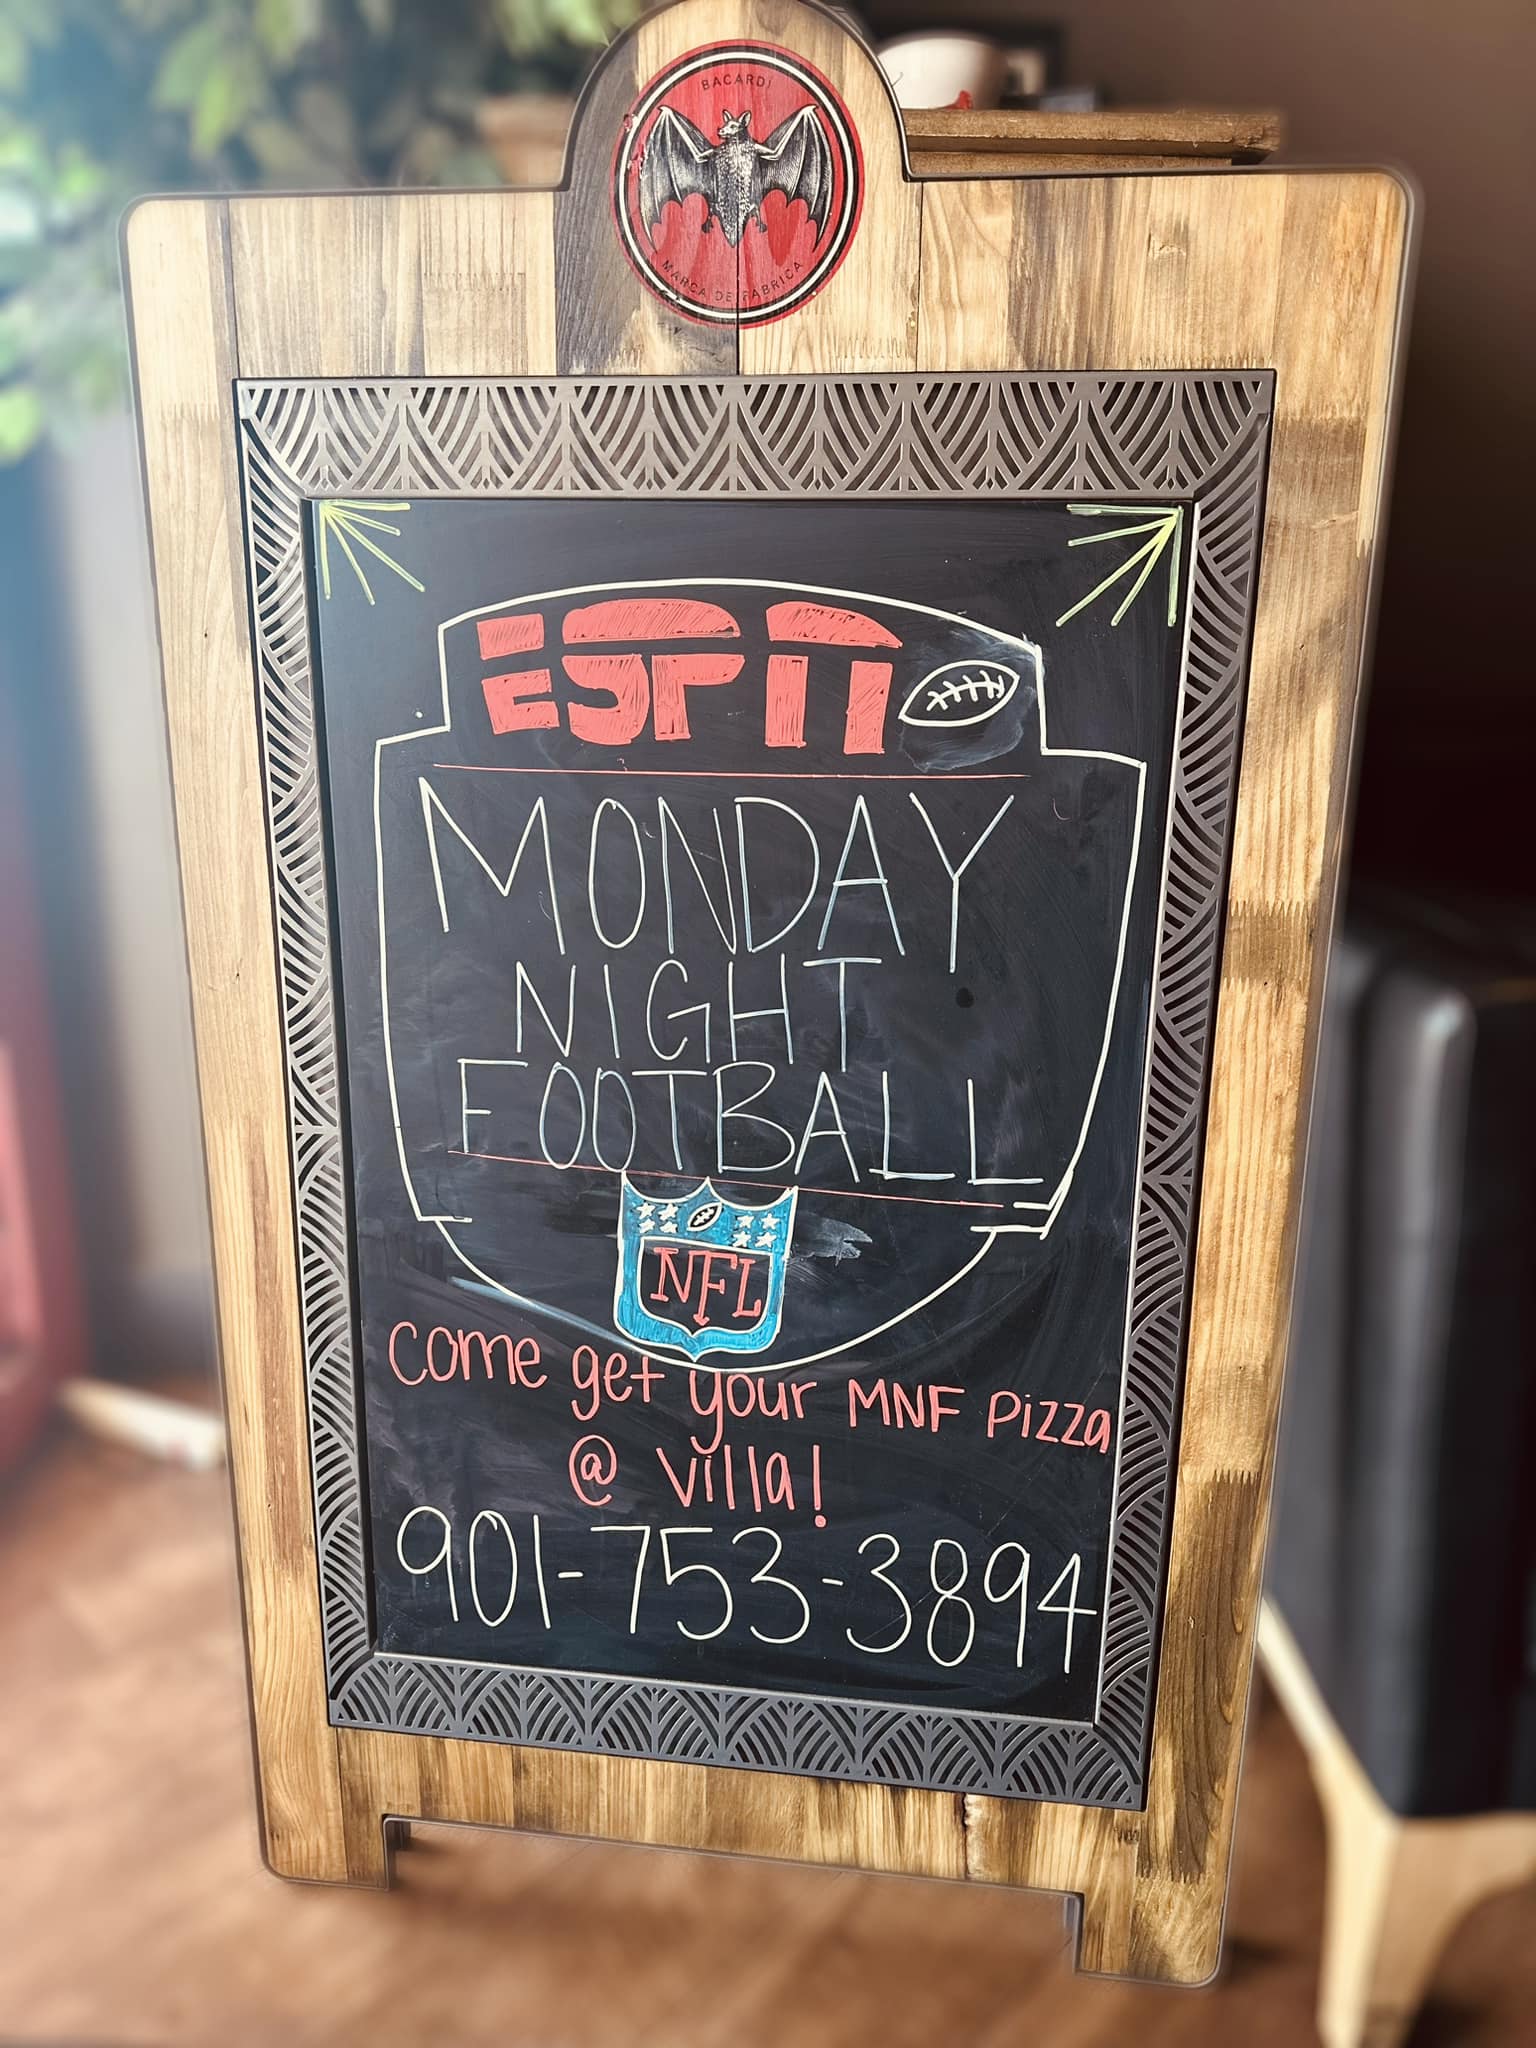 BACARDÍ
MARCA DE FABRICA
ESPN
MONDAY
NIGHT
FOOTBALL
NFL
Come get your MNF Pizza
@ Villa!
901-753-3894